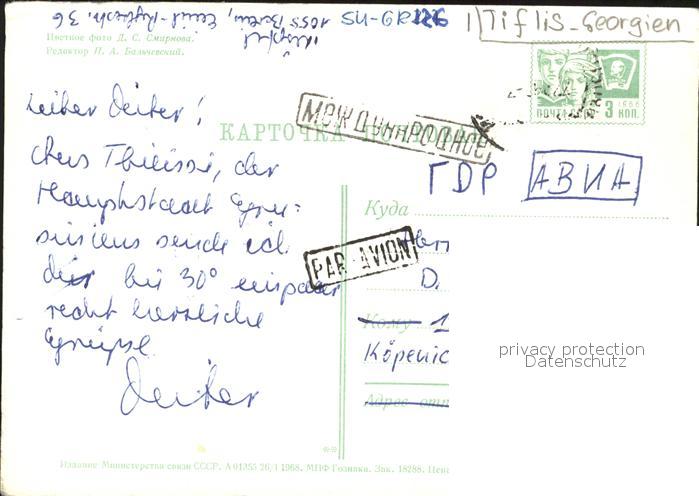 1) Tiflis-Georgien
1055 Berlin,
Цветное фото Д. С. Смирнова.
Редактор П. А. Бальчевский.
1966
ПОЧТА СССР 3 КОП.
МЕЖДУНАРОДНОЕ
КАРТОЧКА ПОЧТОВАЯ
Lieber Dieter!
Aus Tbilissi, der
Hauptstadt Gru=
siniens sende ich
dir bei 30° ein paar
recht herzliche
Grüße
Dieter
ГДР АВИА
Куда
PAR AVION
Herr
D.
Кому 1
Köpenic
Адрес отп
privacy protection
Datenschutz
Издание Министерства связи СССР. А 01355 26/I 1968. МПФ Гознака. Зак. 18288. Цена